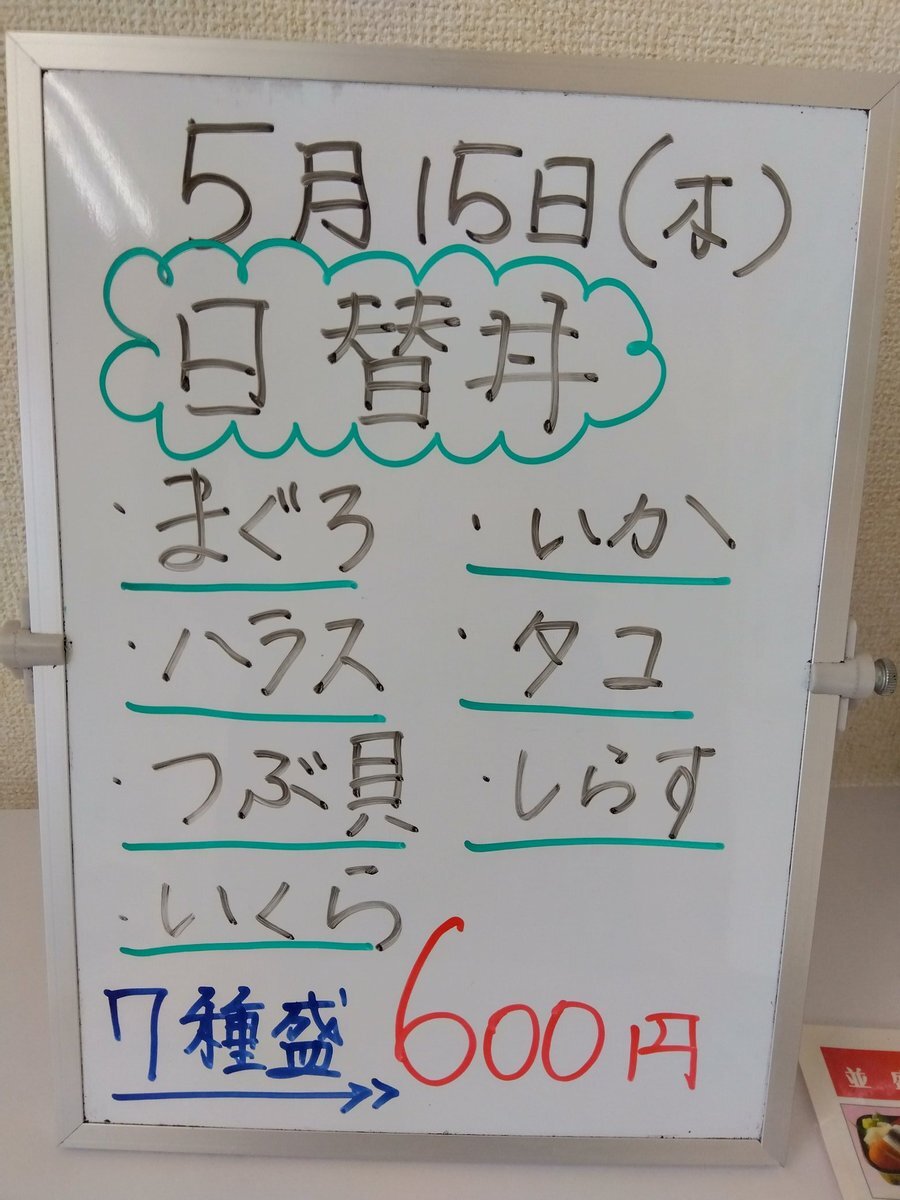 5月15日(木)
日替丼
・まぐろ ・いか
・ハラス ・タコ
・つぶ貝 ・しらす
・いくら
7種盛 600円
並